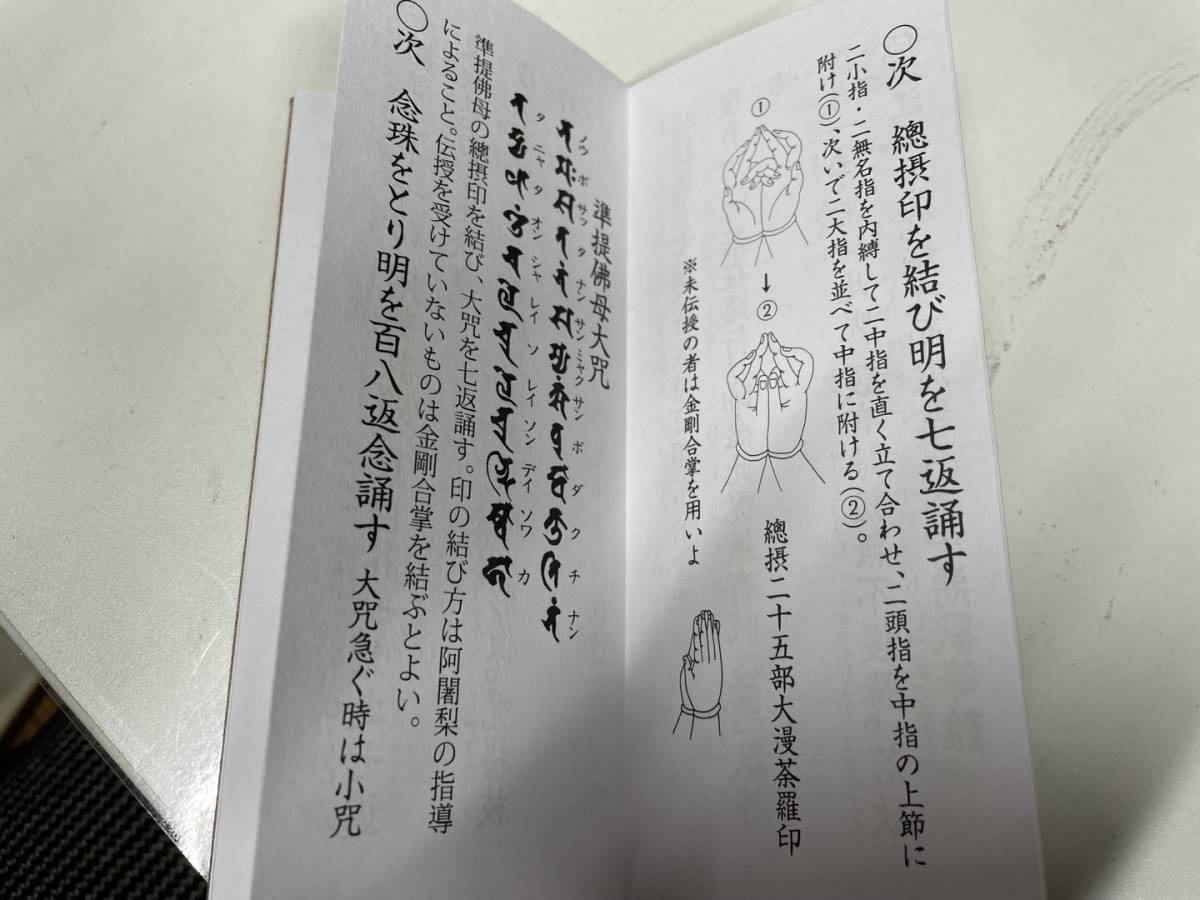 〇次　總摂印を結び明を七返誦す
二小指・二無名指を内縛して二中指を直く立て合わせ、二頭指を中指の上節に
附け（①）、次いで二大指を並べて中指に附ける（②）。
①
↓
②
總摂二十五部大漫荼羅印
※未伝授の者は金剛合掌を用いよ
準提佛母大咒
ノウ ボ サツ タ ナン サン ミャク サン ボ ダ ク チ ナン
タ ニャ タ オン シャ レイ ソ レイ ソン デイ ソワ カ
準提佛母の總摂印を結び、大咒を七返誦す。印の結び方は阿闍梨の指導
によること。伝授を受けていないものは金剛合掌を結ぶとよい。
〇次　念珠をとり明を百八返念誦す　大咒急ぐ時は小咒